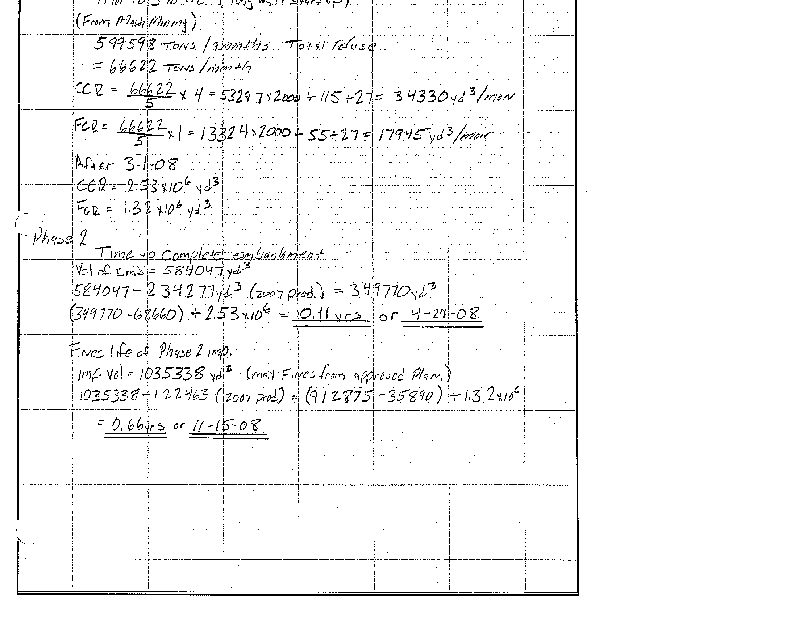 (From Mach Mining)
599598 Tons / 9 months Total refuse
= 66622 Tons/month
CCR = 66622/5 x 4 = 53297 x 2000 ÷ 115 ÷ 27 = 34330 yd³/mon
FCR = 66622/5 x 1 = 13324 x 2000 ÷ 55 ÷ 27 = 17945 yd³/mon
After 3-1-08
CCR = 2.53 x 10⁶ yd³
FCR = 1.32 x 10⁶ yd³
Phase 2
Time to Complete embankment
Vol of Emb = 584047 yd³
584047 - 234277 yd³ (2007 prod.) = 349770 yd³
(349770 - 68660) ÷ 2.53 x 10⁶ = 0.11 yrs or 4-24-08
Fines life of Phase 2 imp.
Imp Vol = 1035338 yd³ (max Fines from approved Plan.)
1035338 - 122463 (2007 prod) = (912875 - 35890) ÷ 1.32 x 10⁶
= 0.66 yrs or 11-15-08